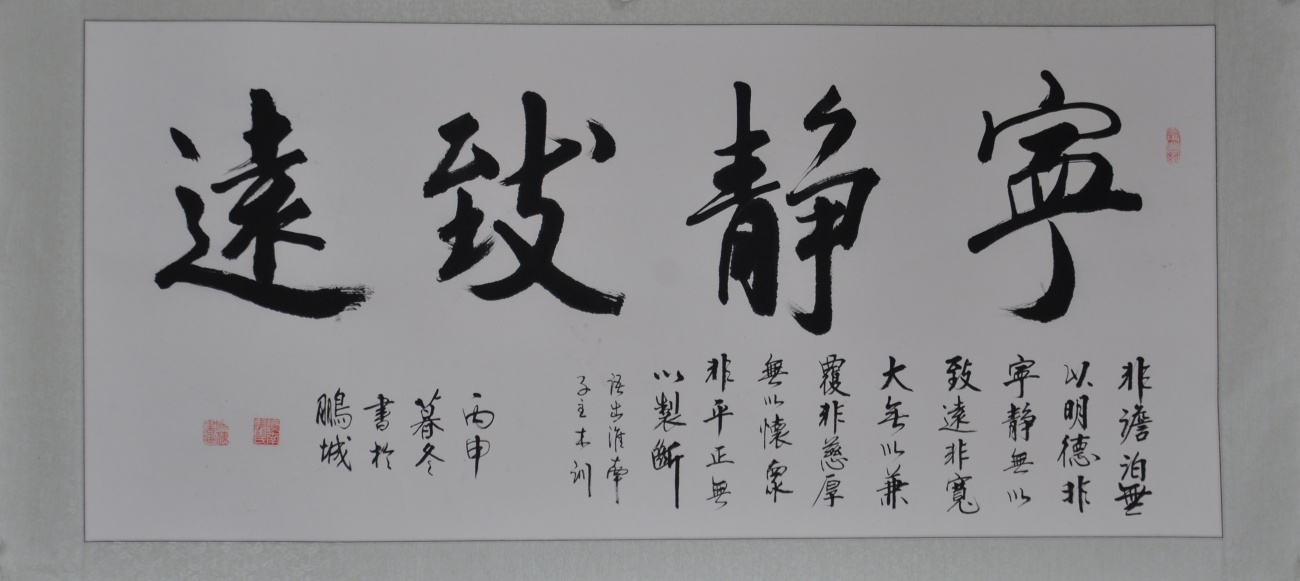 寧靜致遠
非澹泊無
以明德非
寧靜無以
致遠非寬
大無以兼
覆非慈厚
無以懷衆
非平正無
以製斷
語出淮南
子主术训
丙申
暮冬
書於
鵬城